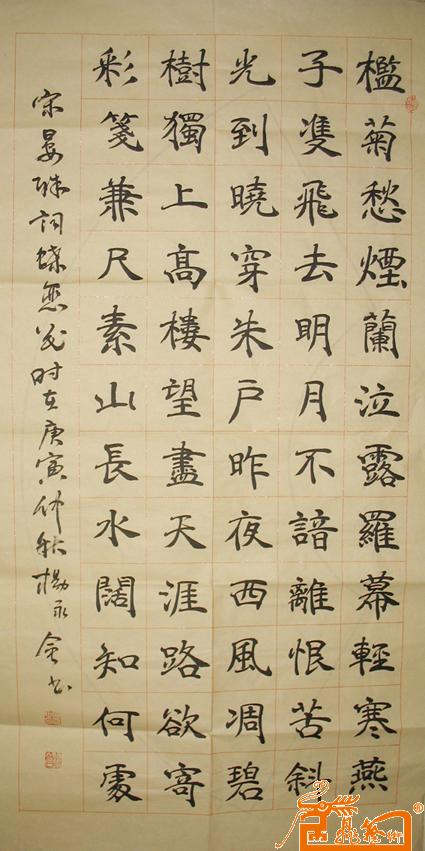 檻菊愁煙蘭泣露羅幕輕寒燕
子雙飛去明月不諳離恨苦斜
光到曉穿朱戶昨夜西風凋碧
樹獨上高樓望盡天涯路欲寄
彩箋兼尺素山長水闊知何處
宋晏殊詞蝶恋花时在庚寅仲秋楊永金书